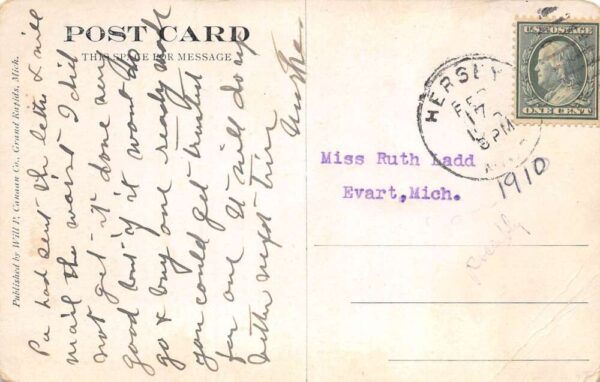 POST CARD
THIS SPACE FOR MESSAGE
Published by Will P. Canaan Co., Grand Rapids, Mich.
Pa had sent the letter & will
mail the waist I did
not get it done very
good but if it wont do
go & buy one ready made
you could get trusted
for one It will do up
better next time
U.S. POSTAGE
ONE CENT
HERSEY
FEB
17
PM
1910
Miss Ruth Ladd
Evart, Mich.